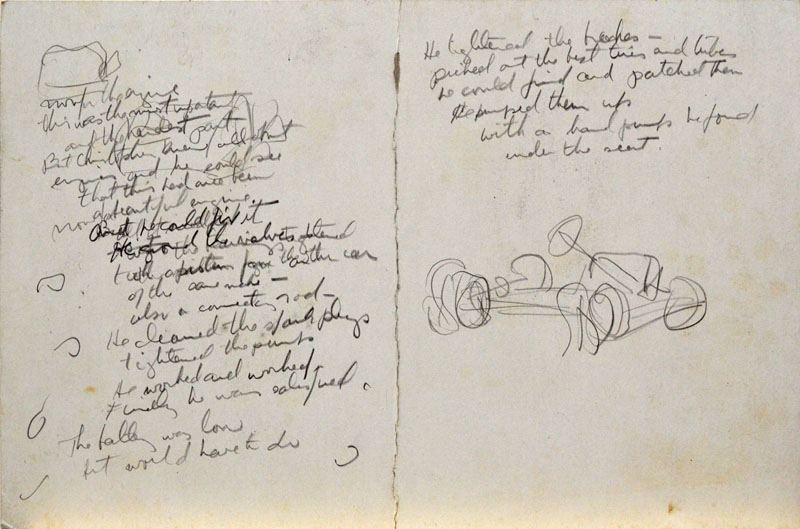 now the engine
this was the most important
and the hardest part
But Christopher knew all about
engines and he could see
that this had once been
a beautiful engine.
And he could fix it
He the valves
took a piston from another car
of the same make –
also a connecting rod –
He cleaned the spark plugs
tightened the pumps
He worked and worked.
Finally he was satisfied.
The battery was low
but would have to do
He tightened the brakes –
picked out the best tires and tubes
he could find and patched them
He pumped them up
with a hand pump he found
under the seat.